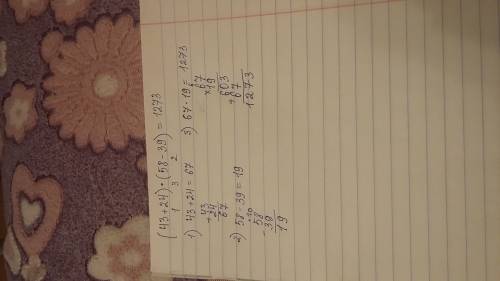 (43+24)·(58-39) = 1273
1 3 2
1) 43+24 = 67
+43
24
67
2) 58-39 = 19
+10
-58
39
19
3) 67·19 = 1273
×67
19
603
+67
1273